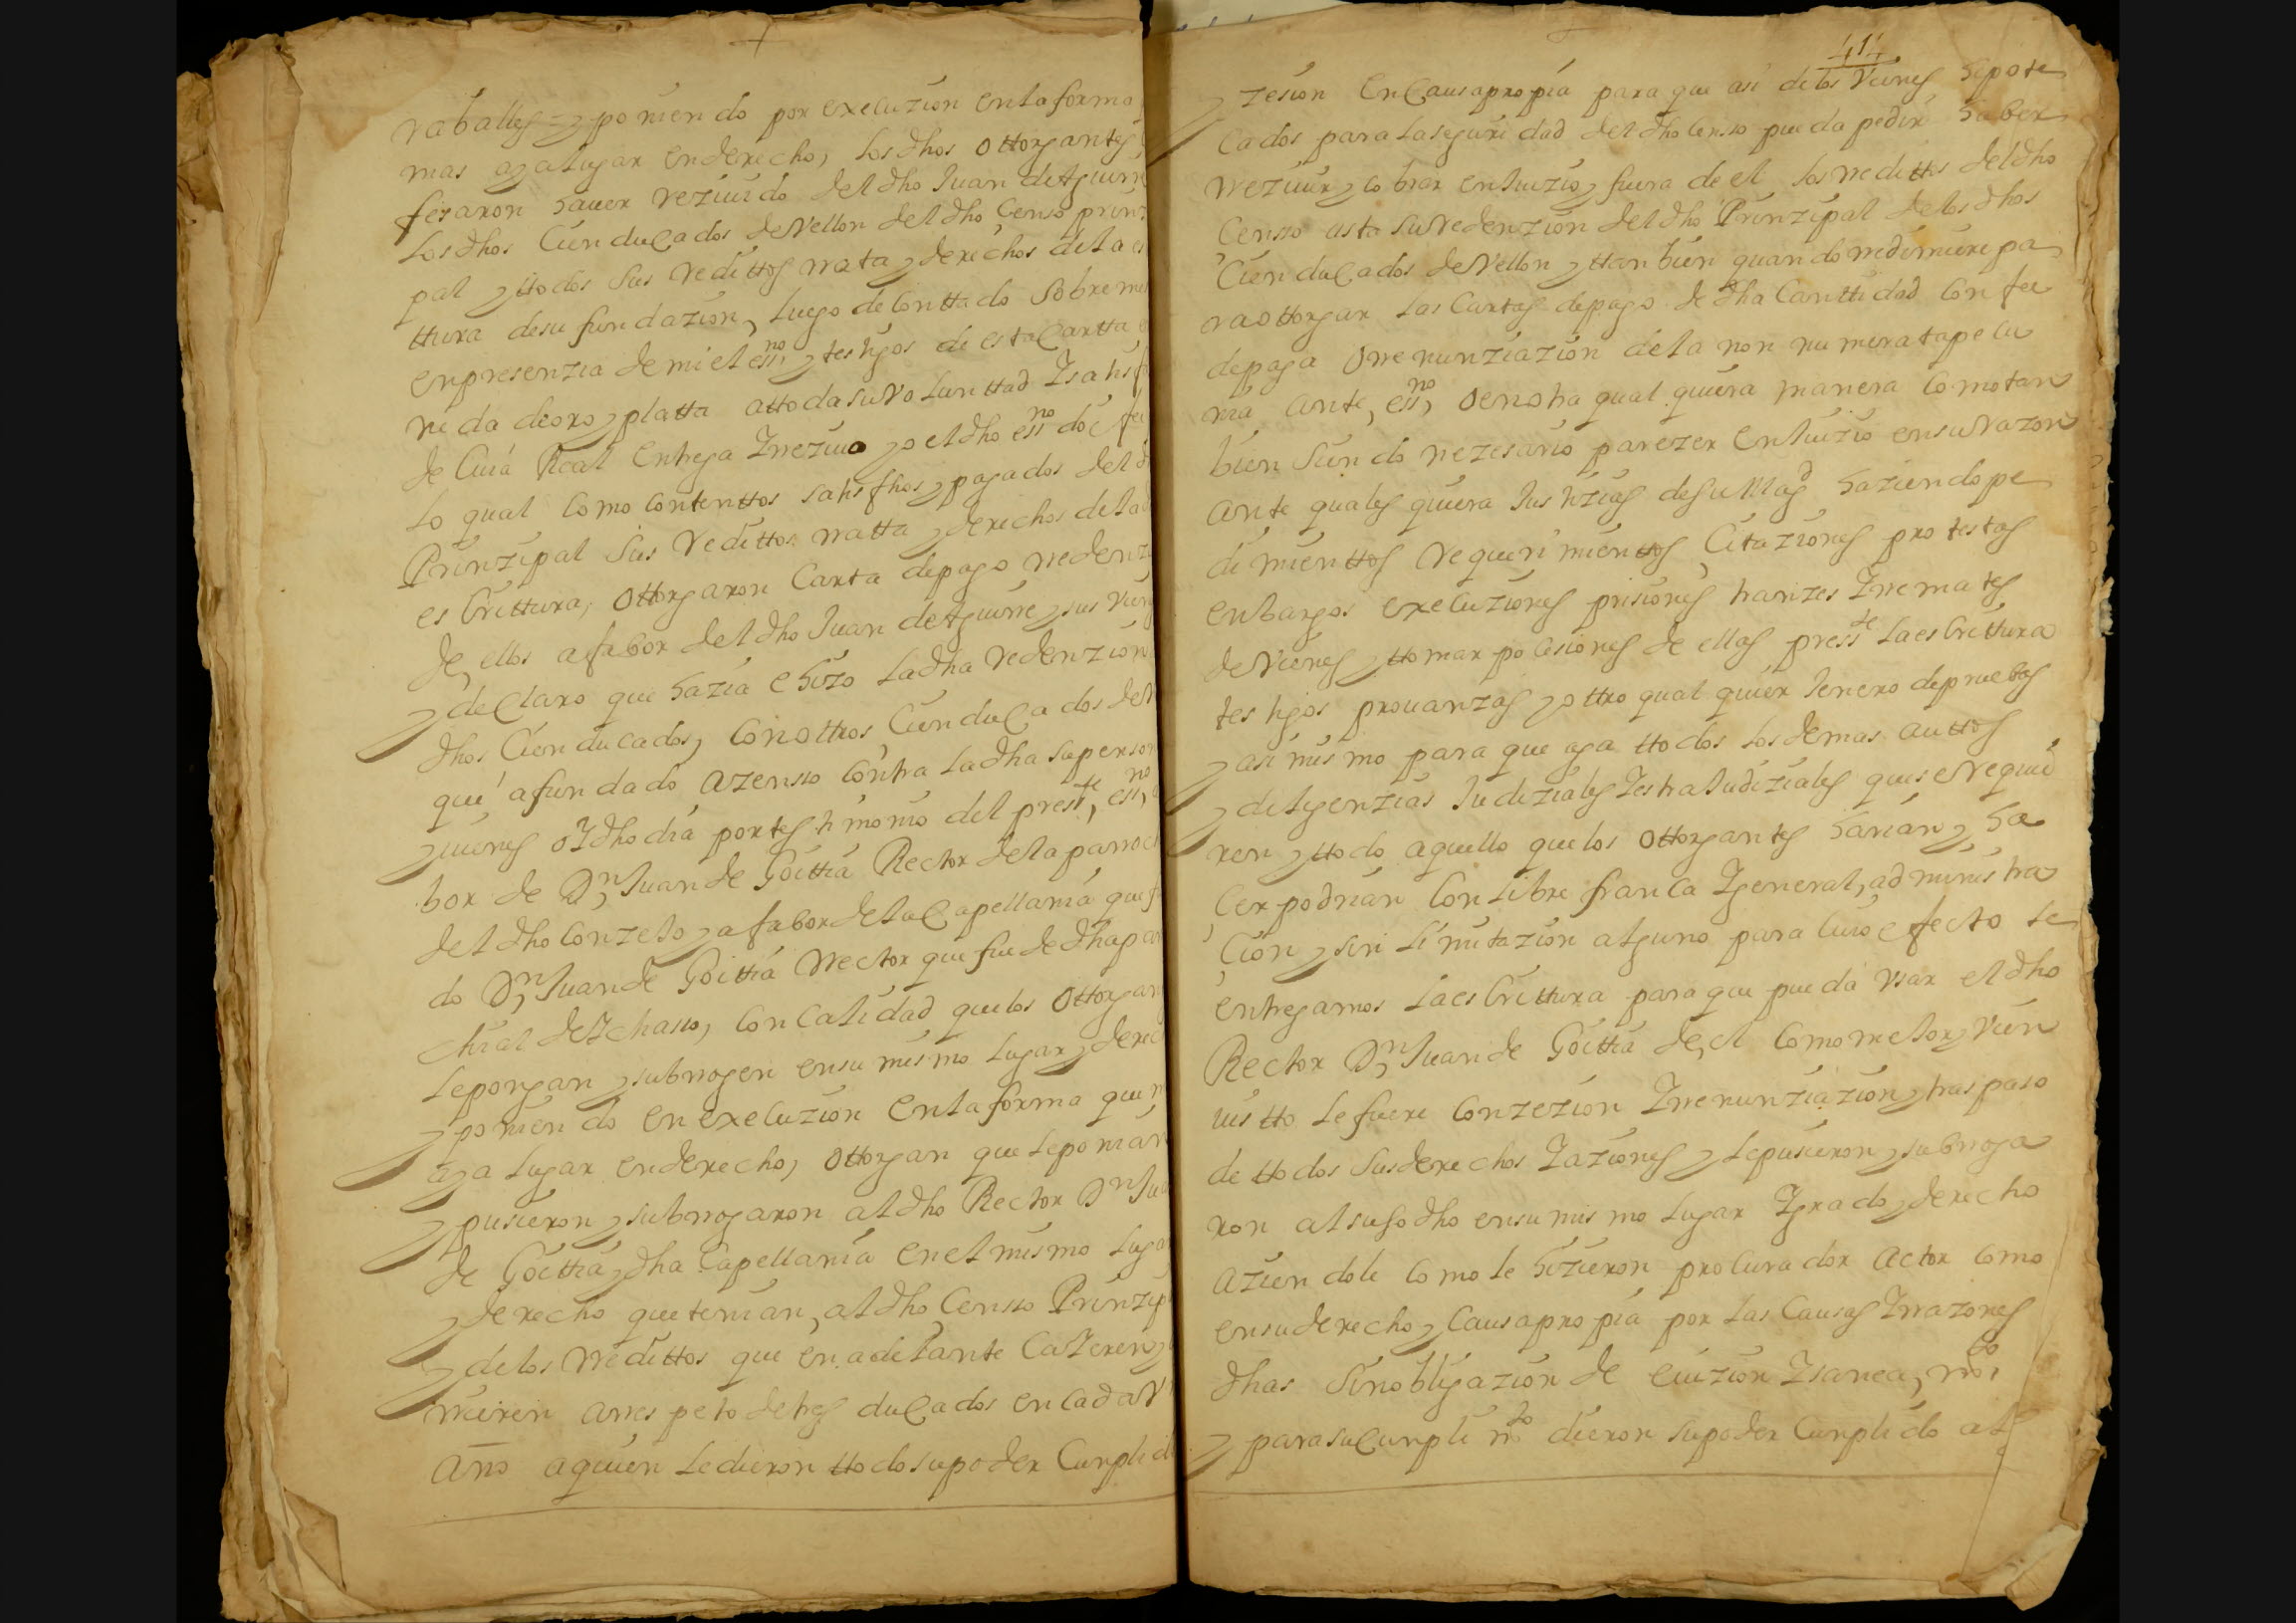 raballes = y poniendo por execuzion en la forma
mas aga lugar en derecho, los dhos ottorgantes
fesaron hauer reziuido del dho Juan de Aguirre
los dhos Cien ducados de Vellon del dho Censo prinz
pal y ttodos sus redittos rrata y derechos de la es
ttura de su fundazion, luego de conttado sobre me
en presenzia de mi el essno, y testigos de esta Cartta
neda de oro y platta a ttoda su voluntad Isatisf
de Cuia Real entrega Irreziuo yo el dho essno doi fee
lo qual como contenttos satisfhos y pagados del d
Prinzipal sus redittos rratta y derechos de la d
esCrittura, ottorgaron Carta de pago redenz
de, ellos a fabor del dho Juan de Aguirre y sus vien
y declaro que hazia e hizo la dha redenzion
dhos Cien ducados, con ottros Cien ducados de V
que a fundado azensso contra la dha su person
y uienes oI dho dia por testimonio del presste, essno,
bor de Dn Juan de Goittia Rector de la parroc
del dho Conzejo y a fabor de la Capellania que f
do Dn Juan de Goittia rrector que fue de dha par
chial de Ichasso, con calidad que los ottorgan
le pongan y subrrogen en su mismo lugar y derec
y poniendo en execuzion en la forma que m
aga lugar en derecho, ottorgan que le ponian
y pusieron y subrrogaron al dho Rector Dn Jua
de Goittia y dha Capellania en el mismo luga
y derecho que tenian, al dho Censso Prinzip
y de los rredittos que en adelante Caieren y
rrieren a rrespeto de tres ducados en cada V
Año a quien le dieron ttodo su poder Cunplid
414
y zesion en Causa propia para que asi de los vienes hipote
cados para la seguridad del dho Censso pueda pedir haber
rreziuir y cobrar en Juizio y fuera de el los redittos del dho
Censso asta su redenzion del dho Prinzipal de los dhos
Cien ducados de Vellon y ttanbien quando rredimiere pa
ra ottorgar las Cartas de pago de dha Canttidad con fee
de paga o rrenunziazion de la non numerata pecu
nia ante, essno, o en otra qualquiera manera como tan
bien siendo nezesario parezer en Juizio en su razon
ante qualesquiera Justizias de su Magd haziendo pe
dimienttos requerimienttos Citaziones protestas
enbargos execuziones prisiones tranzes Irremates
de vienes y ttomar posesiones de ellas presste la esCrittura
testigos prouanzas y ottro qualquier Jenero de pruebas
y asi mismo para que aga ttodos los demas auttos
y diligenzias Judiziales Iestrajudiziales que se requie
ren y ttodo aquello que los ottorgantes harian y ha
cer podrian con libre franca Igeneral, administra
Cion y sin limitazion alguno para Cuio efecto le
entregamos la esCrittura para que pueda vsar el dho
Rector Dn Juan de Goittia de, el como mejor y vien
uistto le fuere conzezion Irrenunziazion y traspaso
de ttodos sus derechos Iaziones y le pusieron y subrroga
ron al susodho en su mismo lugar Igrado y derecho
aziendole como le hizieron procurador actor como
en su derecho y Causa propia por las Causas Irrazones
dhas sin obligazion de euizion Isanea, mto,
y para su Cunplimto dieron su poder Cunplido al